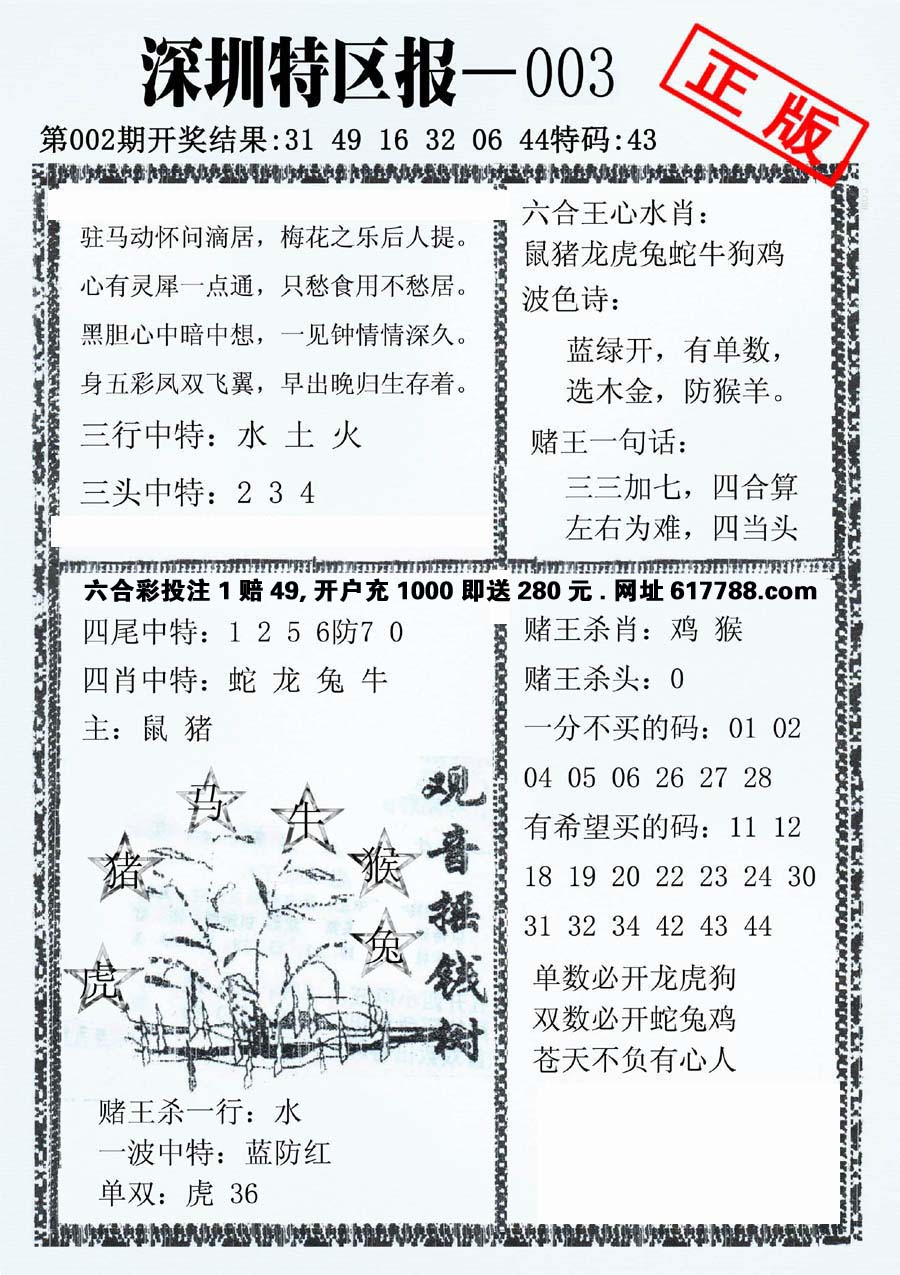 深圳特区报—003
正版
第002期开奖结果:31 49 16 32 06 44特码:43
驻马动怀问滴居，梅花之乐后人提。
心有灵犀一点通，只愁食用不愁居。
黑胆心中暗中想，一见钟情情深久。
身五彩凤双飞翼，早出晚归生存着。
三行中特：水 土 火
三头中特：2 3 4
六合王心水肖：
鼠猪龙虎兔蛇牛狗鸡
波色诗：
蓝绿开，有单数，
选木金，防猴羊。
赌王一句话：
三三加七，四合算
左右为难，四当头
六合彩投注1赔49,开户充1000即送280元.网址617788.com
四尾中特：1 2 5 6防7 0
四肖中特：蛇 龙 兔 牛
主：鼠 猪
马
牛
猪
猴
兔
虎
观音摇钱树
赌王杀一行：水
一波中特：蓝防红
单双：虎 36
赌王杀肖：鸡 猴
赌王杀头：0
一分不买的码：01 02
04 05 06 26 27 28
有希望买的码：11 12
18 19 20 22 23 24 30
31 32 34 42 43 44
单数必开龙虎狗
双数必开蛇兔鸡
苍天不负有心人